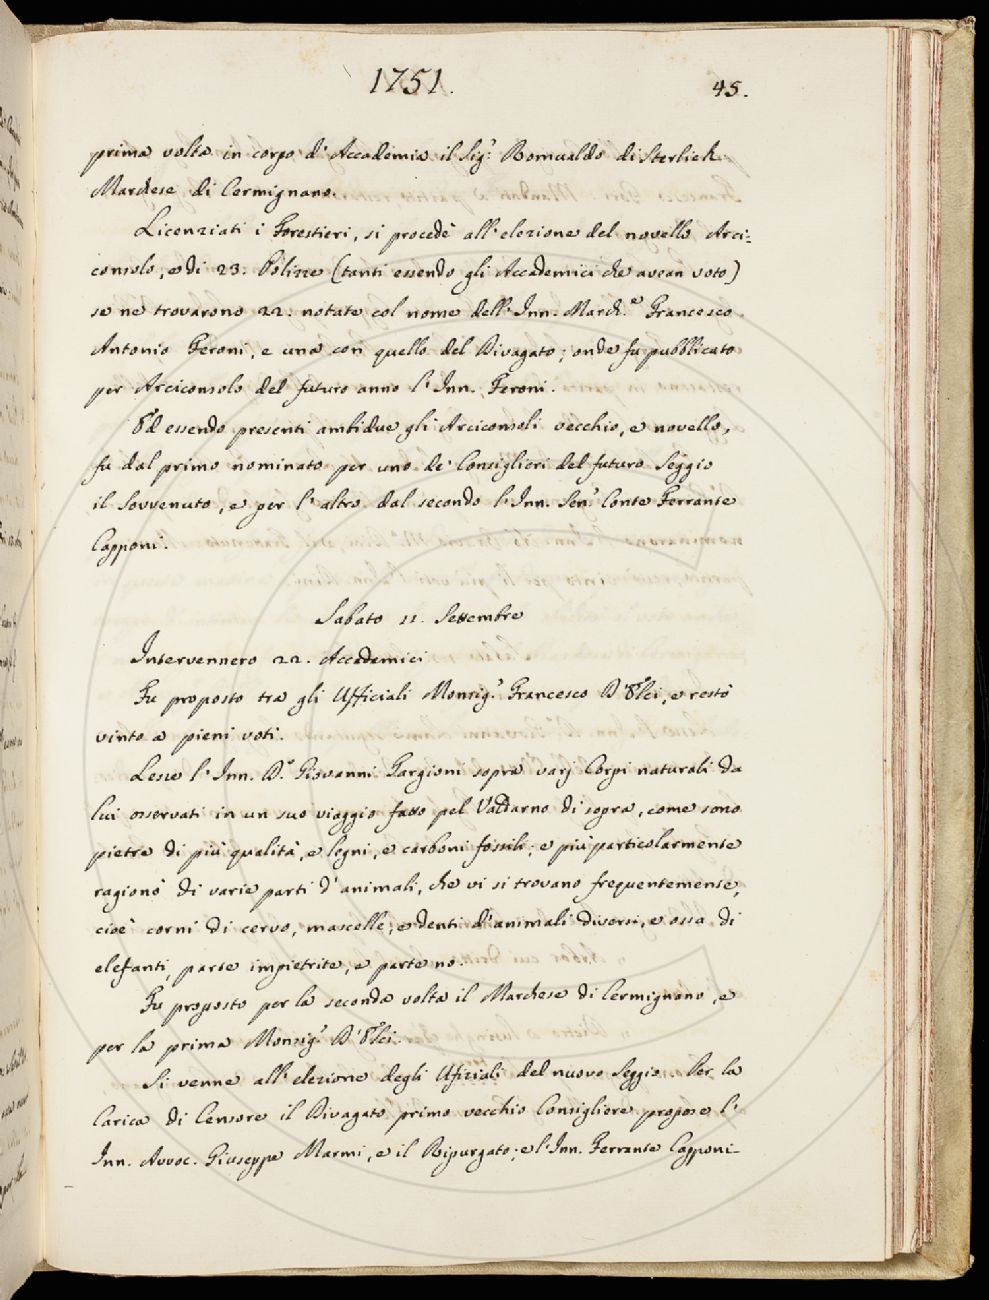 1751.
45.
prima volta in corpo d'Accademia il Sig.r Romualdo di Sterlich
Marchese di Cermignano.
Licenziati i Forestieri, si procedè all'elezione del novello Arci=
consolo, e di 23. Polizze (tanti essendo gli Accademici che avean voto)
se ne trovarono 22. notate col nome dell'Inn. March.e Francesco
Antonio Feroni, e una con quello del Rivagato; onde fu pubblicato
per Arciconsolo del futuro anno l'Inn. Feroni.
Ed essendo presenti ambidue gli Arciconsoli vecchio, e novello,
fu dal primo nominato per uno de' Consiglieri del futuro Seggio
il Sovvenuto, e per l'altro dal secondo l'Inn. Sen.r Conte Ferrante
Capponi.
Sabato 11. Settembre
Intervennero 22. Accademici
Fu proposto tra gli Ufficiali Monsig.r Francesco D'Elci, e restò
vinto a pieni voti.
Lesse l'Inn. D.r Giovanni Targioni sopra varj Corpi naturali da
lui osservati in un suo viaggio fatto pel Valdarno di sopra, come sono
pietre di più qualità, e legni, e carboni fossili; e più particolarmente
ragionò di varie parti d'animali, che vi si trovano frequentemente,
cioè corni di cervo, mascelle, e denti d'animali diversi, e ossa di
elefanti, parte impietrite, e parte no.
Fu proposto per la seconda volta il Marchese di Cermignano, e
per la prima Monsig.r D'Elci.
Si venne all'elezione degli Ufiziali del nuovo Seggio. Per la
Carica di Censore il Rivagato primo vecchio Consigliere propose l'
Inn. Avvoc. Giuseppe Marmi, e il Ripurgato; e l'Inn. Ferrante Capponi